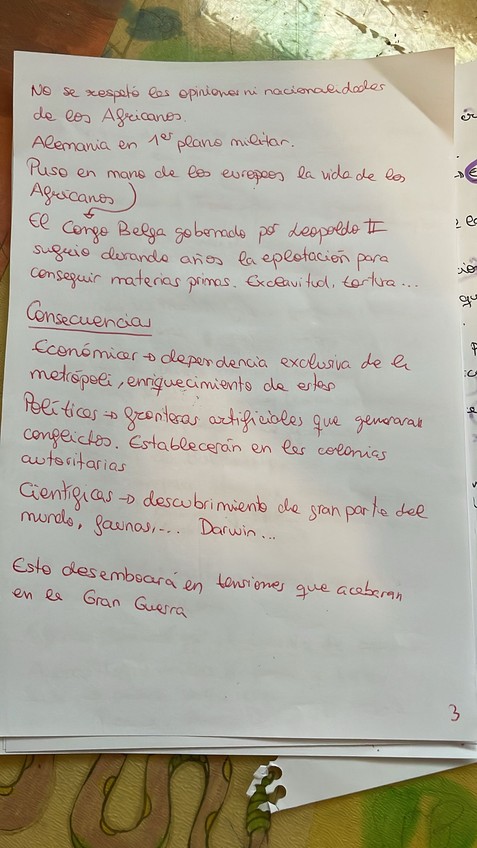 No se respetó las opiniones ni nacionalidades
de los Africanos.
Alemania en 1er plano militar.
Puso en mano de los europeos la vida de los
Africanos
El Congo Belga gobernado por Leopoldo II
sugrio durando años la eplotación para
conseguir materias primas. Exclavitud, tortura...
Consecuencias
Económicas → dependencia exclusiva de la
metrópoli, enriquecimiento de estas
Políticas → fronteras artificiales que generaran
conflictos. Establecerán en las colonias
autoritarias
Científicas → descubrimiento de gran parte del
mundo, faunas,... Darwin...
Esto desembocará en tensiones que acabaran
en la Gran Guerra
3